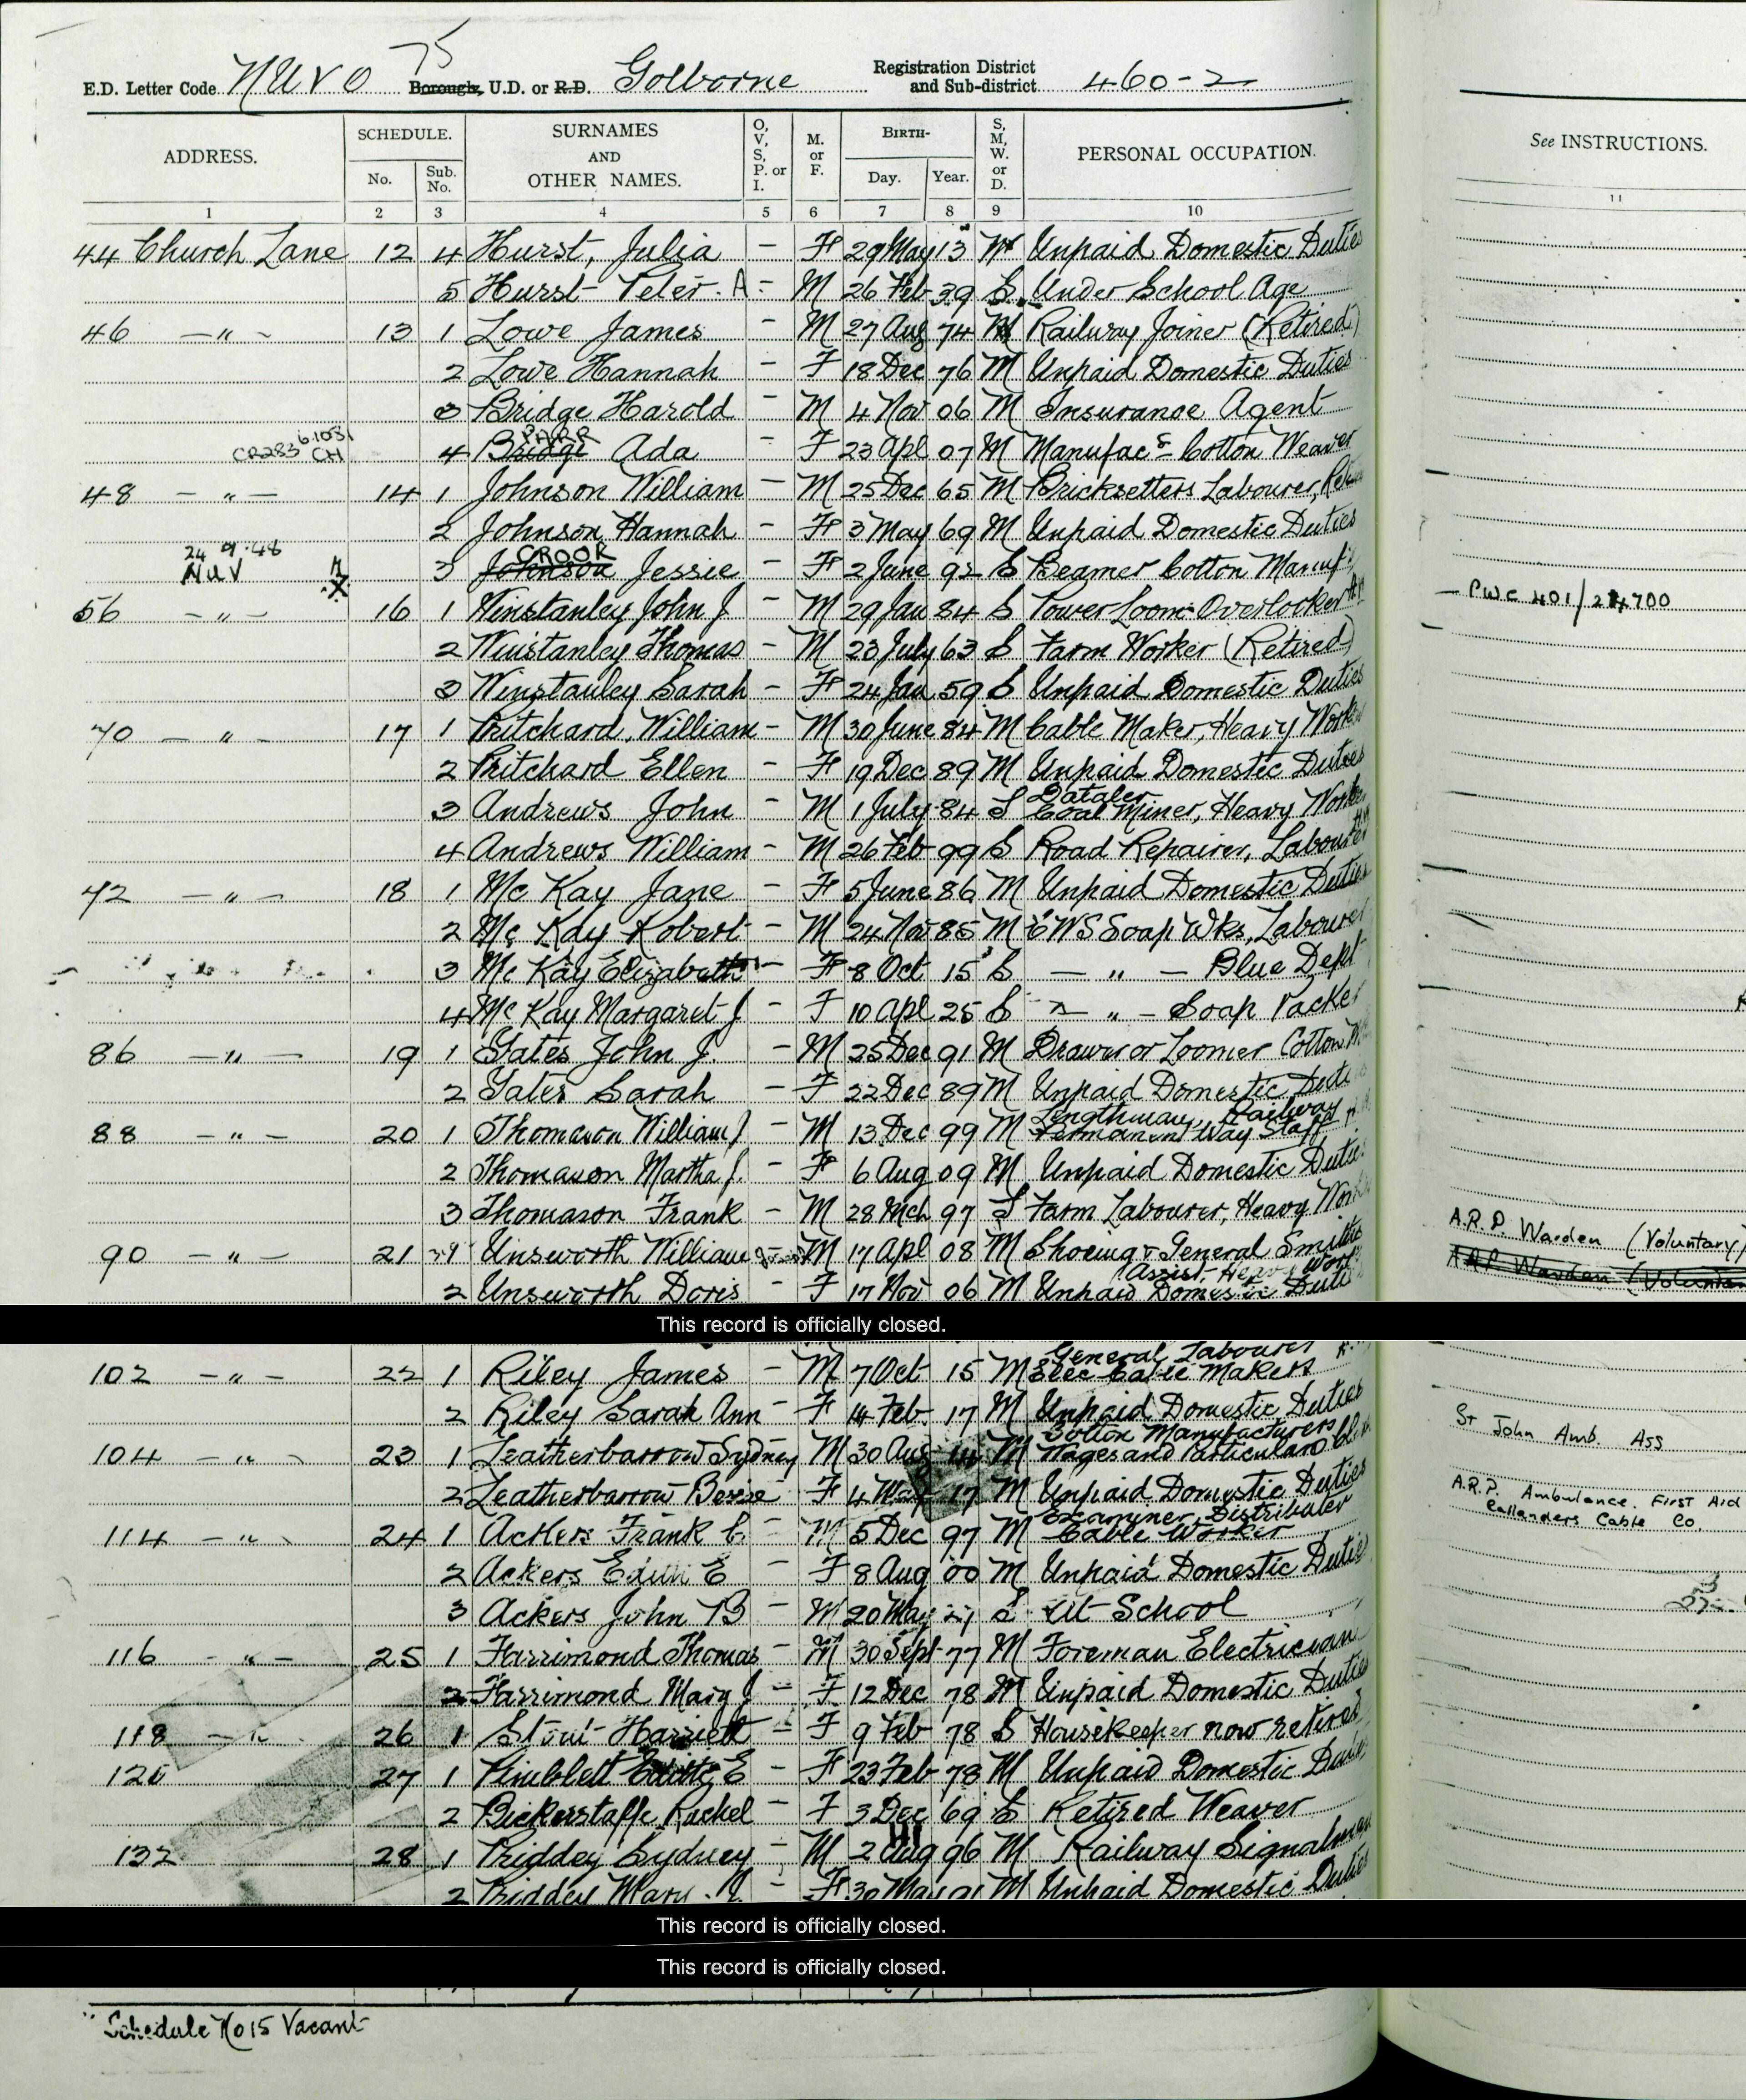 75
E.D. Letter Code NUVO Borough, U.D. or R.D. Golborne Registration District and Sub-district 460-2
ADDRESS. SCHEDULE. No. Sub. No. SURNAMES AND OTHER NAMES. O, V, S, P. or I. M. or F. BIRTH- Day. Year. S, M, W. or D. PERSONAL OCCUPATION. See INSTRUCTIONS.
1 2 3 4 5 6 7 8 9 10 11
44 Church Lane 12 4 Hurst, Julia - F 29 May 13 M Unpaid Domestic Duties
5 Hurst Peter. A - M 26 Feb 39 S Under School Age
46 -"- 13 1 Lowe James - M 27 Aug 74 M Railway Joiner (Retired)
2 Lowe Hannah - F 18 Dec 76 M Unpaid Domestic Duties
3 Bridge Harold - M 4 Nov 06 M Insurance Agent
CR283 CH PARR
4 Bridge Ada - F 23 Apl 07 M Manufac Cotton Weaver
48 -"- 14 1 Johnson William - M 25 Dec 65 M Bricksetters Labourer,
2 Johnson Hannah - F 3 May 69 M Unpaid Domestic Duties
24 9.48 NUV CROOK
3 Johnson Jessie - F 2 June 92 S Beamer Cotton Manuf
56 -"- 16 1 Winstanley John J. - M 29 Jan 84 S Power Loom Overlooker PWC 401/24700
2 Winstanley Thomas - M 23 July 63 S Farm Worker (Retired)
3 Winstanley Sarah - F 24 Jan 59 S Unpaid Domestic Duties
70 -"- 17 1 Pritchard, William - M 30 June 84 M Cable Maker, Heavy Worker
2 Pritchard Ellen - F 19 Dec 89 M Unpaid Domestic Duties
Dataler
3 Andrews John - M 1 July 84 S Coal Miner, Heavy Worker
4 Andrews William - M 26 Feb 99 S Road Repairer, Labourer
72 -"- 18 1 Mc Kay Jane - F 5 June 86 M Unpaid Domestic Duties
2 Mc Kay Robert - M 24 Nov 85 M CWS Soap Wks, Labourer
3 Mc Kay Elizabeth - F 8 Oct 15 S -"- Blue Dept
4 Mc Kay Margaret J - F 10 Apl 25 S -"- Soap Packer
86 -"- 19 1 Yates John J. - M 25 Dec 91 M Drawer or Loomer Cotton
2 Yates Sarah - F 22 Dec 89 M Unpaid Domestic Duties
Lengthman, Railway
88 -"- 20 1 Thomason William J - M 13 Dec 99 M Permanent Way Staff
2 Thomason Martha J. - F 6 Aug 09 M Unpaid Domestic Duties
3 Thomason Frank - M 28 Mch 97 S Farm Labourer, Heavy Work
A.R.P. Warden (Voluntary)
90 -"- 21 1 Unsworth William M 17 Apl 08 M Shoeing & General Smiths
(Assist, Heavy Work A.R.P. Warden (Voluntar
2 Unsworth Doris F 17 Nov 06 M Unpaid Domestic Duties
This record is officially closed.
General Labourer
102 -"- 22 1 Riley James - M 7 Oct 15 M Elec Cable Makers
2 Riley Sarah Ann - F 14 Feb 17 M Unpaid Domestic Duties
Cotton Manufacturers St John Amb. Ass
104 -"- 23 1 Leatherbarrow Sydney M 30 Aug 14 M Wages and Particulars
2 Leatherbarrow - F 4 17 M Unpaid Domestic Duties
Examiner, Distributer A.R.P. Ambulance. First Aid
114 -"- 24 1 Ackers Frank C. - M 5 Dec 97 M Cable Worker Callenders Cable Co.
2 Ackers Edith E F 8 Aug 00 M Unpaid Domestic Duties
3 Ackers John B - M 20 May 27 S At School
116 -"- 25 1 Farrimond Thomas - M 30 Sept 77 M Foreman Electrician
2 Farrimond Mary J - F 12 Dec 78 M Unpaid Domestic Duties
118 -"- 26 1 Stout Harriett - F 9 Feb 78 S Housekeeper now retired
120 27 1 Pimblett E - F 23 Feb 78 M Unpaid Domestic Duties
2 Bickerstaffe Rachel - F 3 Dec 69 S Retired Weaver
132 28 1 Priddey Sydney - M 2 Aug 96 M Railway Signalman
2 Priddey Mary - F 30 May M Unpaid Domestic Duties
This record is officially closed.
This record is officially closed.
Schedule No 15 Vacant